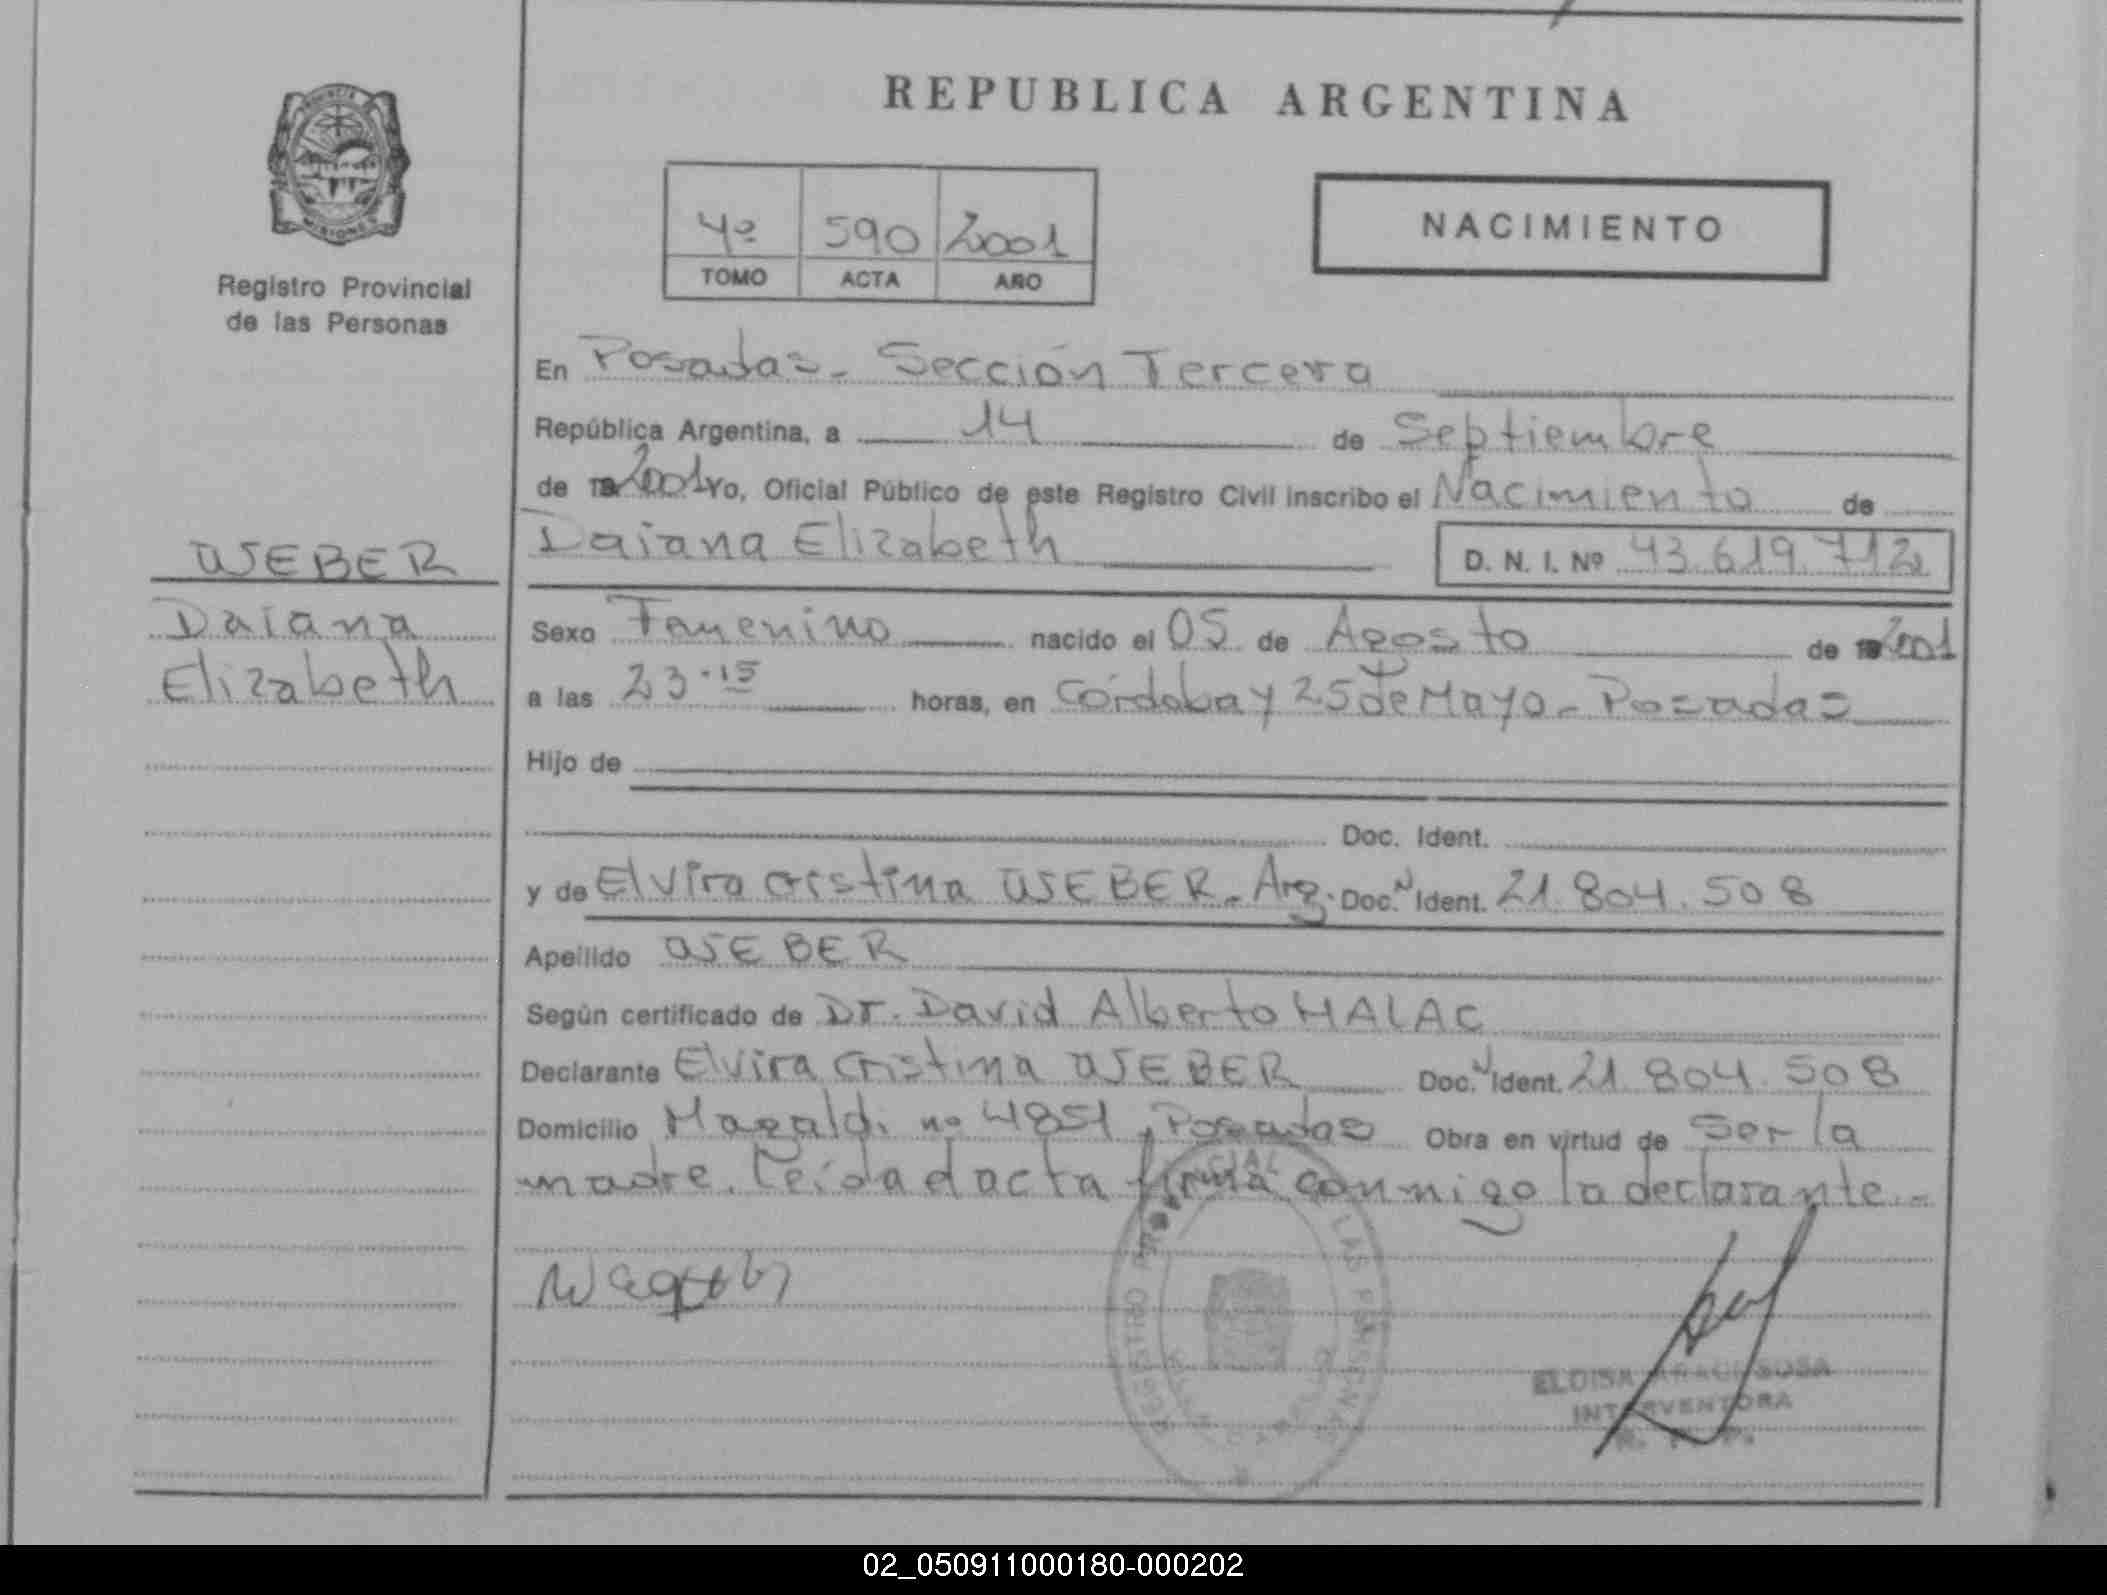 REPUBLICA ARGENTINA
PROVINCIA
MISIONES
Registro Provincial
de las Personas
4º 590 2001
TOMO ACTA AÑO
NACIMIENTO
En Posadas - Sección Tercera
República Argentina, a 14 de Septiembre
de 2001 Yo, Oficial Público de este Registro Civil inscribo el Nacimiento de
Daiana Elizabeth D. N. I. Nº 43.619.712
WEBER
Daiana
Elizabeth
Sexo Femenino nacido el 05 de Agosto de 2001
a las 23.15 horas, en Córdoba y 25 de Mayo - Posadas
Hijo de
Doc. Ident.
y de Elvira Cristina WEBER - Arg. Doc. N Ident. 21.804.508
Apellido WEBER
Según certificado de Dr. David Alberto HALAC
Declarante Elvira Cristina WEBER Doc. N Ident. 21.804.508
Domicilio Magaldi nº 4851, Posadas Obra en virtud de ser la
madre. Leída el acta firma conmigo la declarante.-
REGISTRO PROVINCIAL LAS PERSONAS
ELOISA SOSA
INTERVENTORA
02_050911000180-000202